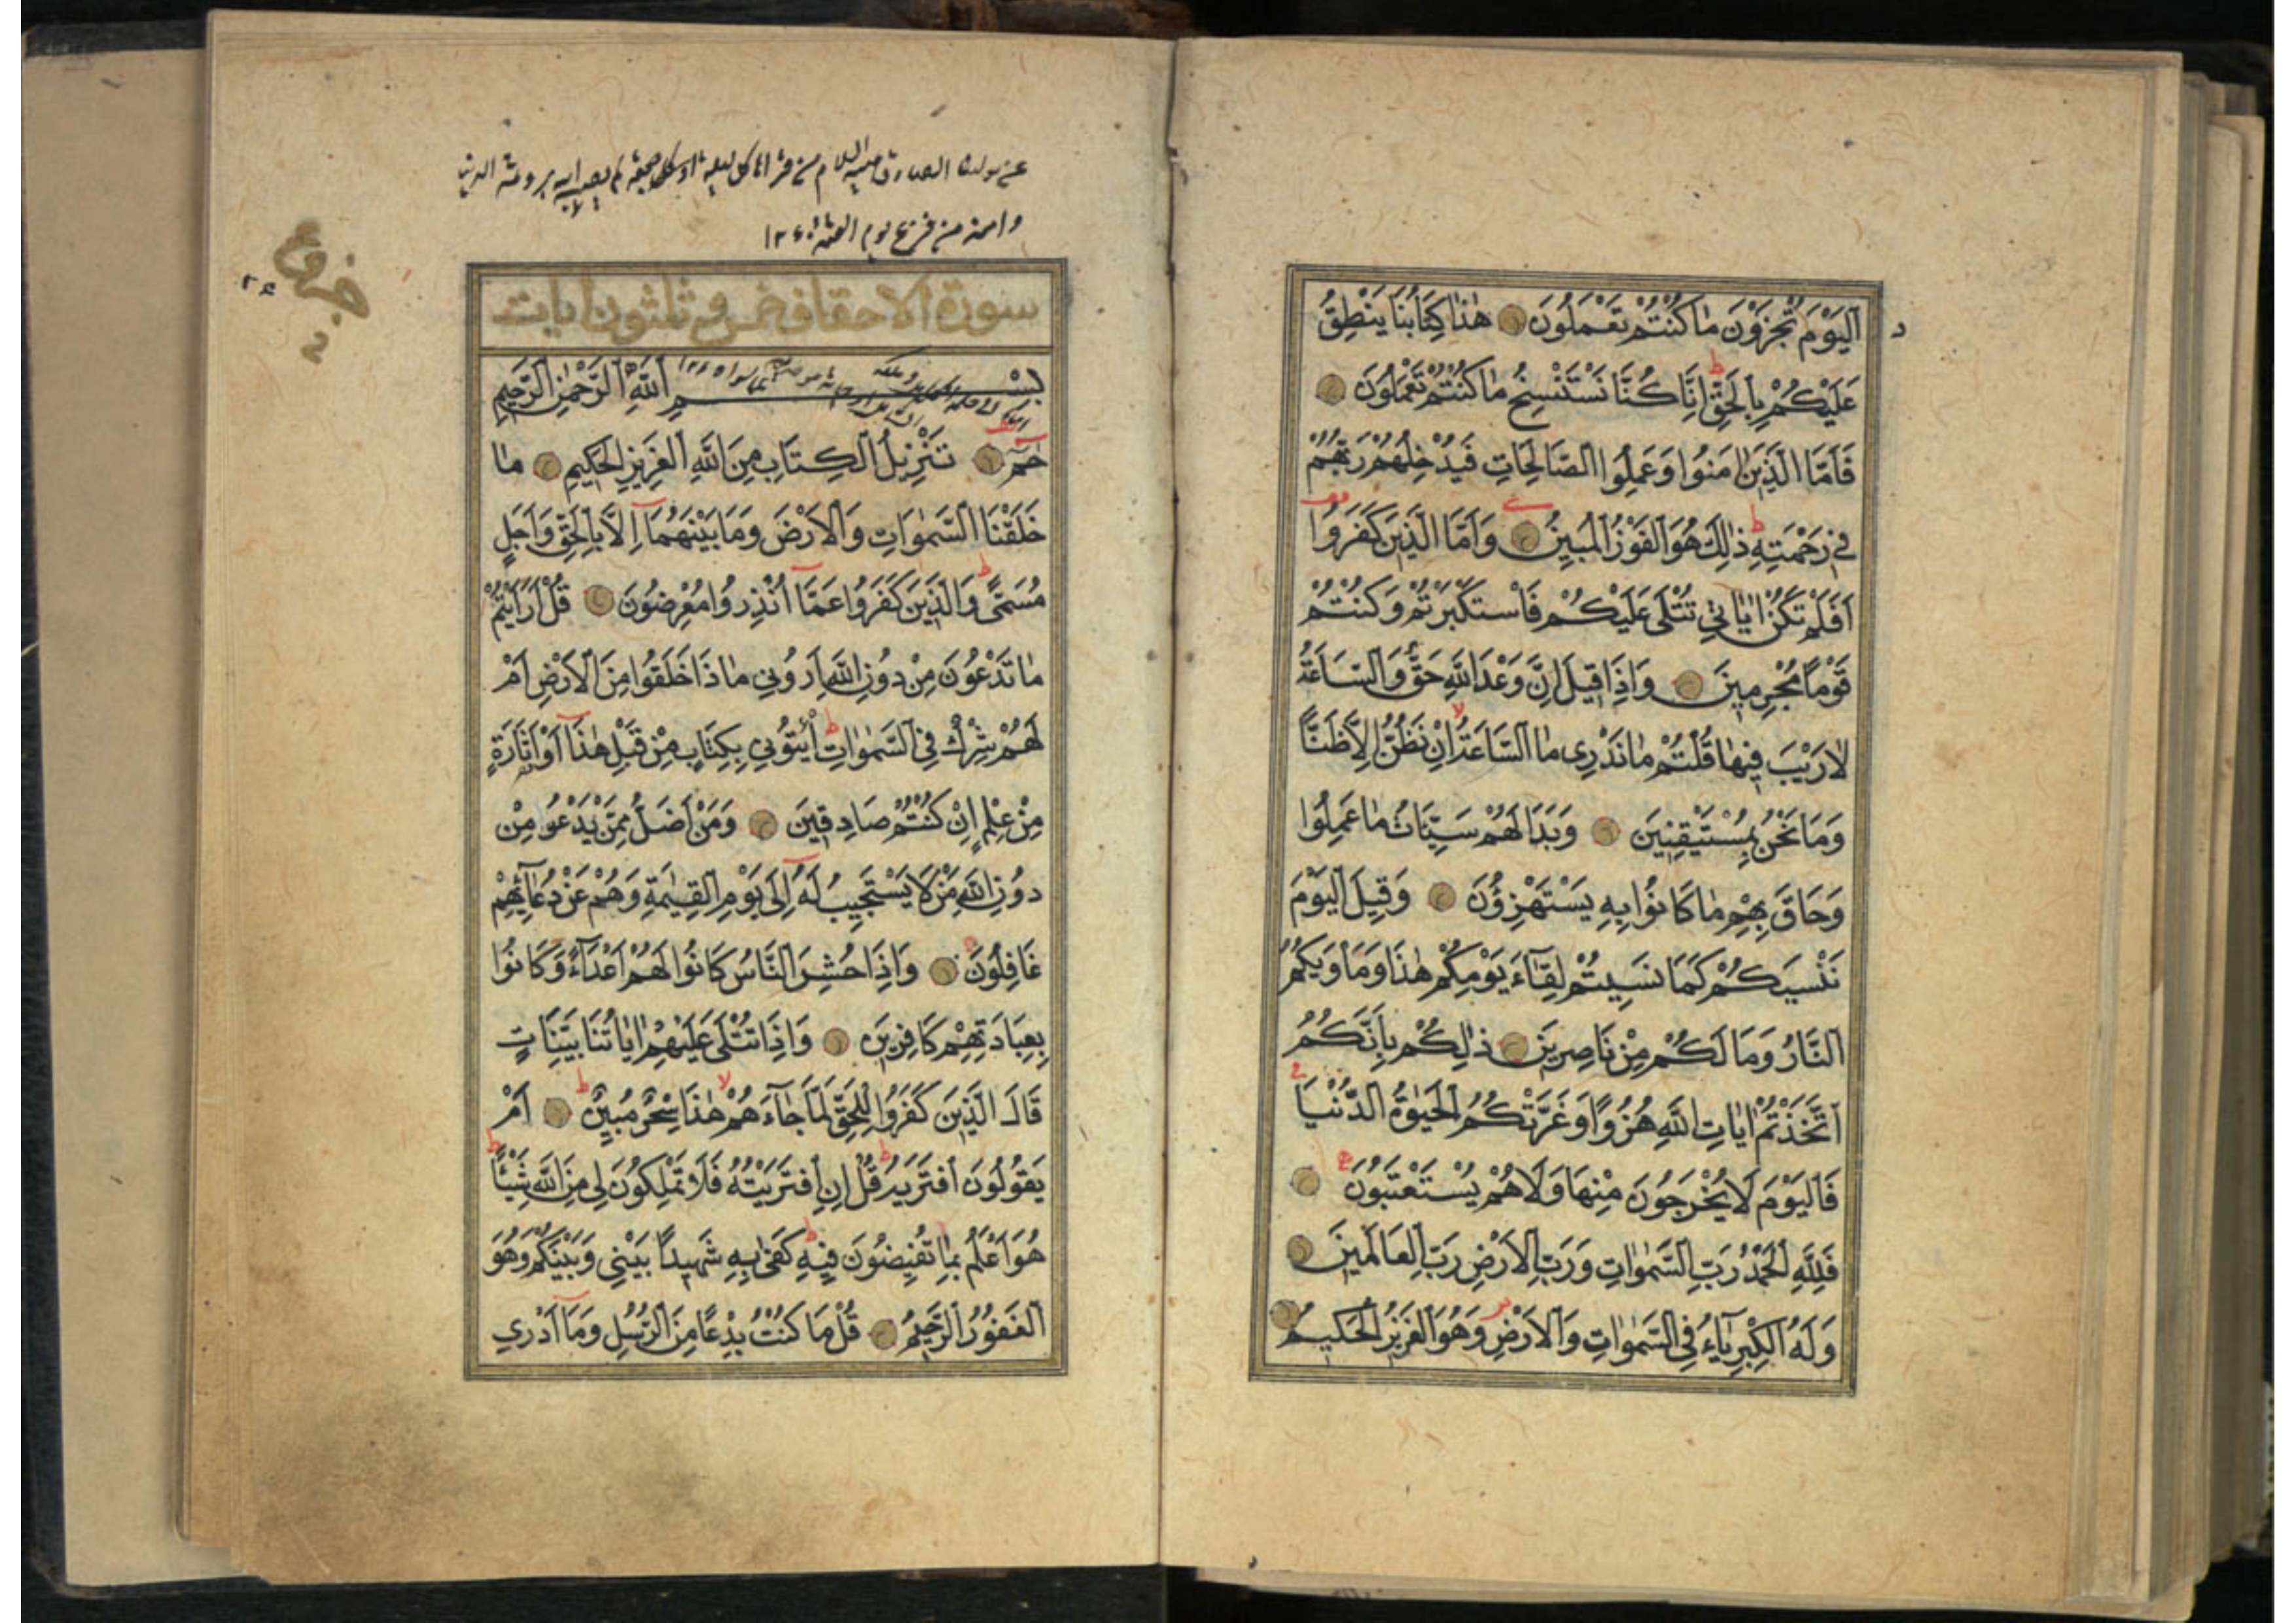 اَلْيَوْمَ تُجْزَوْنَ مٰا كُنْتُمْ تَعْمَلُونَ هٰذٰا كِتَابُنَا يَنْطِقُ
عَلَيْكُمْ بِالْحَقِّ اِنَّا كُنَّا نَسْتَنْسِخُ مٰا كُنْتُمْ تَعْمَلُونَ
فَاَمَّا الَّذِينَ اٰمَنُوا وَعَمِلُوا الصَّالِحَاتِ فَيُدْخِلُهُمْ رَبُّهُمْ
فِي رَحْمَتِهِ ذٰلِكَ هُوَ الْفَوْزُ الْمُبِينُ وَاَمَّا الَّذِينَ كَفَرُوا
اَفَلَمْ تَكُنْ اٰيَاتِي تُتْلٰى عَلَيْكُمْ فَاسْتَكْبَرْتُمْ وَكُنْتُمْ
قَوْمًا مُجْرِمِينَ وَاِذَا قِيلَ اِنَّ وَعْدَ اللّٰهِ حَقٌّ وَالسَّاعَةُ
لٰا رَيْبَ فِيهٰا قُلْتُمْ مٰا نَدْرِى مٰا السَّاعَةُ اِنْ نَظُنُّ اِلَّا ظَنًّا
وَمَا نَحْنُ بِمُسْتَيْقِنِينَ وَبَدَا لَهُمْ سَيِّئَاتُ مٰا عَمِلُوا
وَحَاقَ بِهِمْ مٰا كَانُوا بِهِ يَسْتَهْزِؤُنَ وَقِيلَ الْيَوْمَ
نَنْسٰيكُمْ كَمَا نَسِيتُمْ لِقَٓاءَ يَوْمِكُمْ هٰذَا وَمَأْوٰيكُمُ
النَّارُ وَمَا لَكُمْ مِنْ نَاصِرِينَ ذٰلِكُمْ بِاَنَّكُمُ
اتَّخَذْتُمْ اٰيَاتِ اللّٰهِ هُزُوًا وَغَرَّتْكُمُ الْحَيٰوةُ الدُّنْيَا
فَالْيَوْمَ لَا يُخْرَجُونَ مِنْهَا وَلَا هُمْ يُسْتَعْتَبُونَ
فَلِلّٰهِ الْحَمْدُ رَبِّ السَّمٰوٰاتِ وَرَبِّ الْاَرْضِ رَبِّ الْعَالَمِينَ
وَلَهُ الْكِبْرِيَٓاءُ فِي السَّمٰوٰاتِ وَالْاَرْضِ وَهُوَ الْعَزِيزُ الْحَكِيمُ
سورة الاحقاف خمس و ثلثون ايات
بِسْمِ اللّٰهِ الرَّحْمٰنِ الرَّحِيمِ
حٰمٓ تَنْزِيلُ الْكِتَابِ مِنَ اللّٰهِ الْعَزِيزِ الْحَكِيمِ مٰا
خَلَقْنَا السَّمٰوَاتِ وَالْاَرْضَ وَمَا بَيْنَهُمَا اِلَّا بِالْحَقِّ وَاَجَلٍ
مُسَمًّى وَالَّذِينَ كَفَرُوا عَمَّا اُنْذِرُوا مُعْرِضُونَ قُلْ اَرَاَيْتُمْ
مٰا تَدْعُونَ مِنْ دُونِ اللّٰهِ اَرُونِي مٰا ذَا خَلَقُوا مِنَ الْاَرْضِ اَمْ
لَهُمْ شِرْكٌ فِي السَّمٰوٰاتِ اِئْتُونِي بِكِتَابٍ مِنْ قَبْلِ هٰذَا اَوْ اَثَارَةٍ
مِنْ عِلْمٍ اِنْ كُنْتُمْ صَادِقِينَ وَمَنْ اَضَلُّ مِمَّنْ يَدْعُو مِنْ
دُونِ اللّٰهِ مَنْ لَا يَسْتَجِيبُ لَهُ اِلٰى يَوْمِ الْقِيٰمَةِ وَهُمْ عَنْ دُعَٓائِهِمْ
غَافِلُونَ وَاِذَا حُشِرَ النَّاسُ كَانُوا لَهُمْ اَعْدَٓاءً وَكَانُوا
بِعِبَادَتِهِمْ كَافِرِينَ وَاِذَا تُتْلٰى عَلَيْهِمْ اٰيٰاتُنَا بَيِّنَاتٍ
قَالَ الَّذِينَ كَفَرُوا لِلْحَقِّ لَمَّا جَٓاءَهُمْ هٰذَا سِحْرٌ مُبِينٌ اَمْ
يَقُولُونَ افْتَرٰيهُ قُلْ اِنِ افْتَرَيْتُهُ فَلَا تَمْلِكُونَ لِي مِنَ اللّٰهِ شَيْئًا
هُوَ اَعْلَمُ بِمٰا تُفِيضُونَ فِيهِ كَفٰى بِهِ شَهِيدًا بَيْنِي وَبَيْنَكُمْ وَهُوَ
الْغَفُورُ الرَّحِيمُ قُلْ مَا كُنْتُ بِدْعًا مِنَ الرُّسُلِ وَمَا اَدْرِي